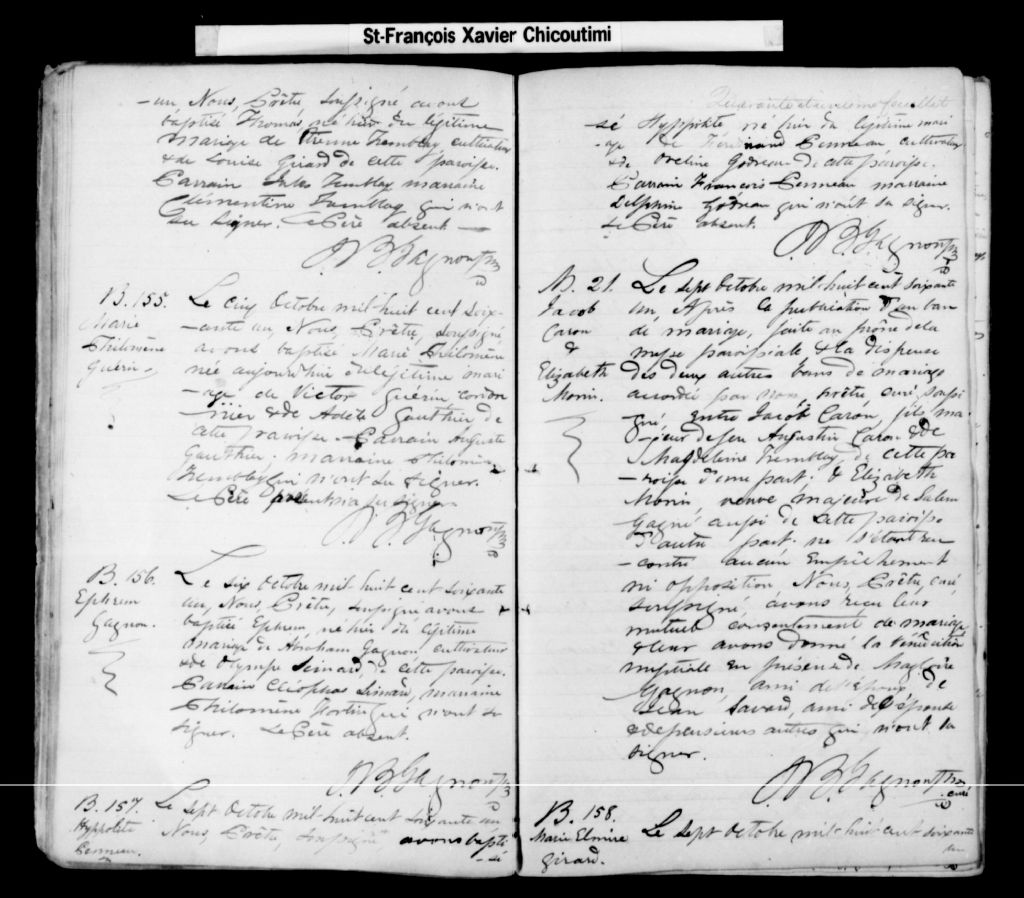 St-François Xavier Chicoutimi
-un, Nous, Prêtre soussigné avons
baptisé Thomas, né hier du légitime
mariage de Etienne Tremblay cultivateur
& de Louise Girard de cette paroisse.
Parrain Jules Tremblay marraine
Clémentine Tremblay qui n'ont
su signer. Le Père absent —
N. B. Gagnon Ptre
B. 155.
Marie
Philomène
Guérin.
Le cinq Octobre mil-huit cent soix-
-ante un, Nous, Prêtre, soussigné
avons baptisé Marie Philomène
née aujourd'hui du légitime mari
-age de Victor Guérin cordon
-nier & de Adèle Gauthier de
cette paroisse. - Parrain Auguste
Gauthier. marraine Philomène
Tremblay qui n'ont su signer.
Le Père présent n'a su signer
N. B. Gagnon Ptre
B. 156.
Ephrem
Gagnon.
Le six Octobre mil huit cent soixante
un, Nous, Prêtre, soussigné avons
baptisé Ephrem, né hier du légitime
mariage de Abraham Gagnon cultivateur
& de Olympe Simard, de cette paroisse.
Parrain Cléophas Simard, marraine
Philomène Fortin qui n'ont su
signer. Le Père absent.
N. B. Gagnon Ptre
B. 157.
Hyppolite
Penneau.
Le sept Octobre mil-huit cent soixante un
Nous, Prêtre soussigné avons bapti
-sé
Quarante et unième feuillet
-sé Hyppolite né hier du légitime mari
-age de Férdinand Penneau, cultivateur
& de Oveline Godreau de cette paroisse.
Parrain François Penneau marraine
Delphine Godreau qui n'ont su signer.
Le Père absent.
N. B. Gagnon Ptre
M. 21.
Jacob
Caron
&
Elizabeth
Morin.
Le sept Octobre mil-huit cent soixante
un, Après la publication d'un ban
de mariage, faite au prône de la
messe paroissiale & la dispense
des deux autres bans de mariage
accordée par nous prêtre, curé soussi
gné, entre Jacob Caron, fils ma-
-jeur de feu Augustin Caron & de
Magdeleine Tremblay de cette pa
-roisse d'une part. & Elizabeth
Morin, veuve, majeure de Salem
Gagné aussi de cette paroisse
d'autre part. ne s'étant ren
-contré aucun Empêchement
ni opposition, Nous, Prêtre, curé,
soussigné, avons reçu leur
mutuel consentement de mariage
& leur avons donné la bénédiction
nuptiale en présence de Magloire
Gagnon, ami de l'époux, de
Jean Savard, ami de l'épouse
& de plusieurs autres qui n'ont su
signer.
N. B. Gagnon Ptre
curé
B. 158.
Marie Elmire
Girard.
Le sept Octobre mil-huit cent soixante
un